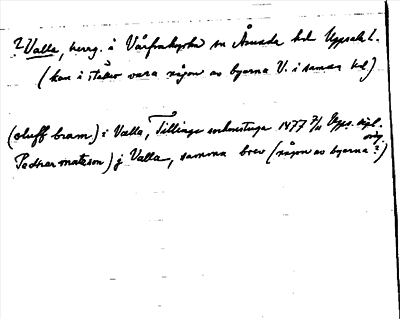 ? Valla, herrg. i Vårfrukyrka sn Åsunda hd Uppsala l.
(kan i stället vara någon av byarna V. i samma hd)
(oluff bram) i Valla, Tillinge sockenstuga 1477 7/11 Upps. dipl. orig.
Pedhar mattsson) j Valla, samma brev (någon av byarna?)